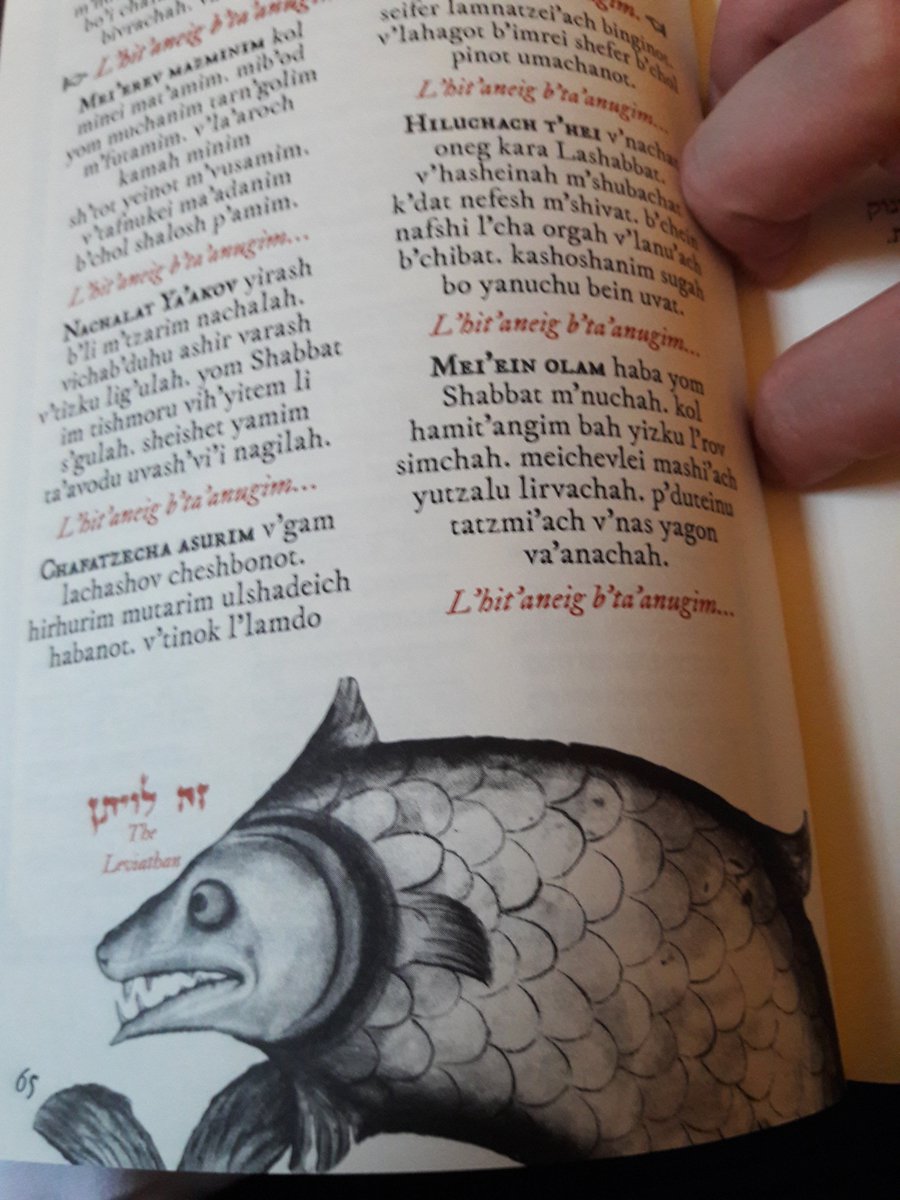 bo'i
bivrachah.
L'hit'aneig b'ta'anugim...
Mei'erev mazminim kol
minei mat'amim. mib'od
yom muchanim tarn'golim
m'futamim. v'la'aroch
kamah minim
sh'tot yeinot m'vusamim.
v'tafnukei ma'adanim
b'chol shalosh p'amim.
L'hit'aneig b'ta'anugim...
Nachalat Ya'akov yirash
b'li m'tzarim nachalah.
vichab'duhu ashir varash
v'tizku lig'ulah. yom Shabbat
im tishmoru vih'yitem li
s'gulah. sheishet yamim
ta'avodu uvash'vi'i nagilah.
L'hit'aneig b'ta'anugim...
Chafatzecha asurim v'gam
lachashov cheshbonot.
hirhurim mutarim ulshadeich
habanot. v'tinok l'lamdo
seifer lamnatzei'ach binginot.
v'lahagot b'imrei shefer b'chol
pinot umachanot.
L'hit'aneig b'ta'anugim...
Hiluchach t'hei v'nachat
oneg kara Lashabbat.
v'hasheinah m'shubachat
k'dat nefesh m'shivat. b'chein
nafshi l'cha orgah v'lanu'ach
b'chibat. kashoshanim sugah
bo yanuchu bein uvat.
L'hit'aneig b'ta'anugim...
Mei'ein olam haba yom
Shabbat m'nuchah. kol
hamit'angim bah yizku l'rov
simchah. meichevlei mashi'ach
yutzalu lirvachah. p'duteinu
tatzmi'ach v'nas yagon
va'anachah.
L'hit'aneig b'ta'anugim...
זה לויתן
The
Leviathan
65